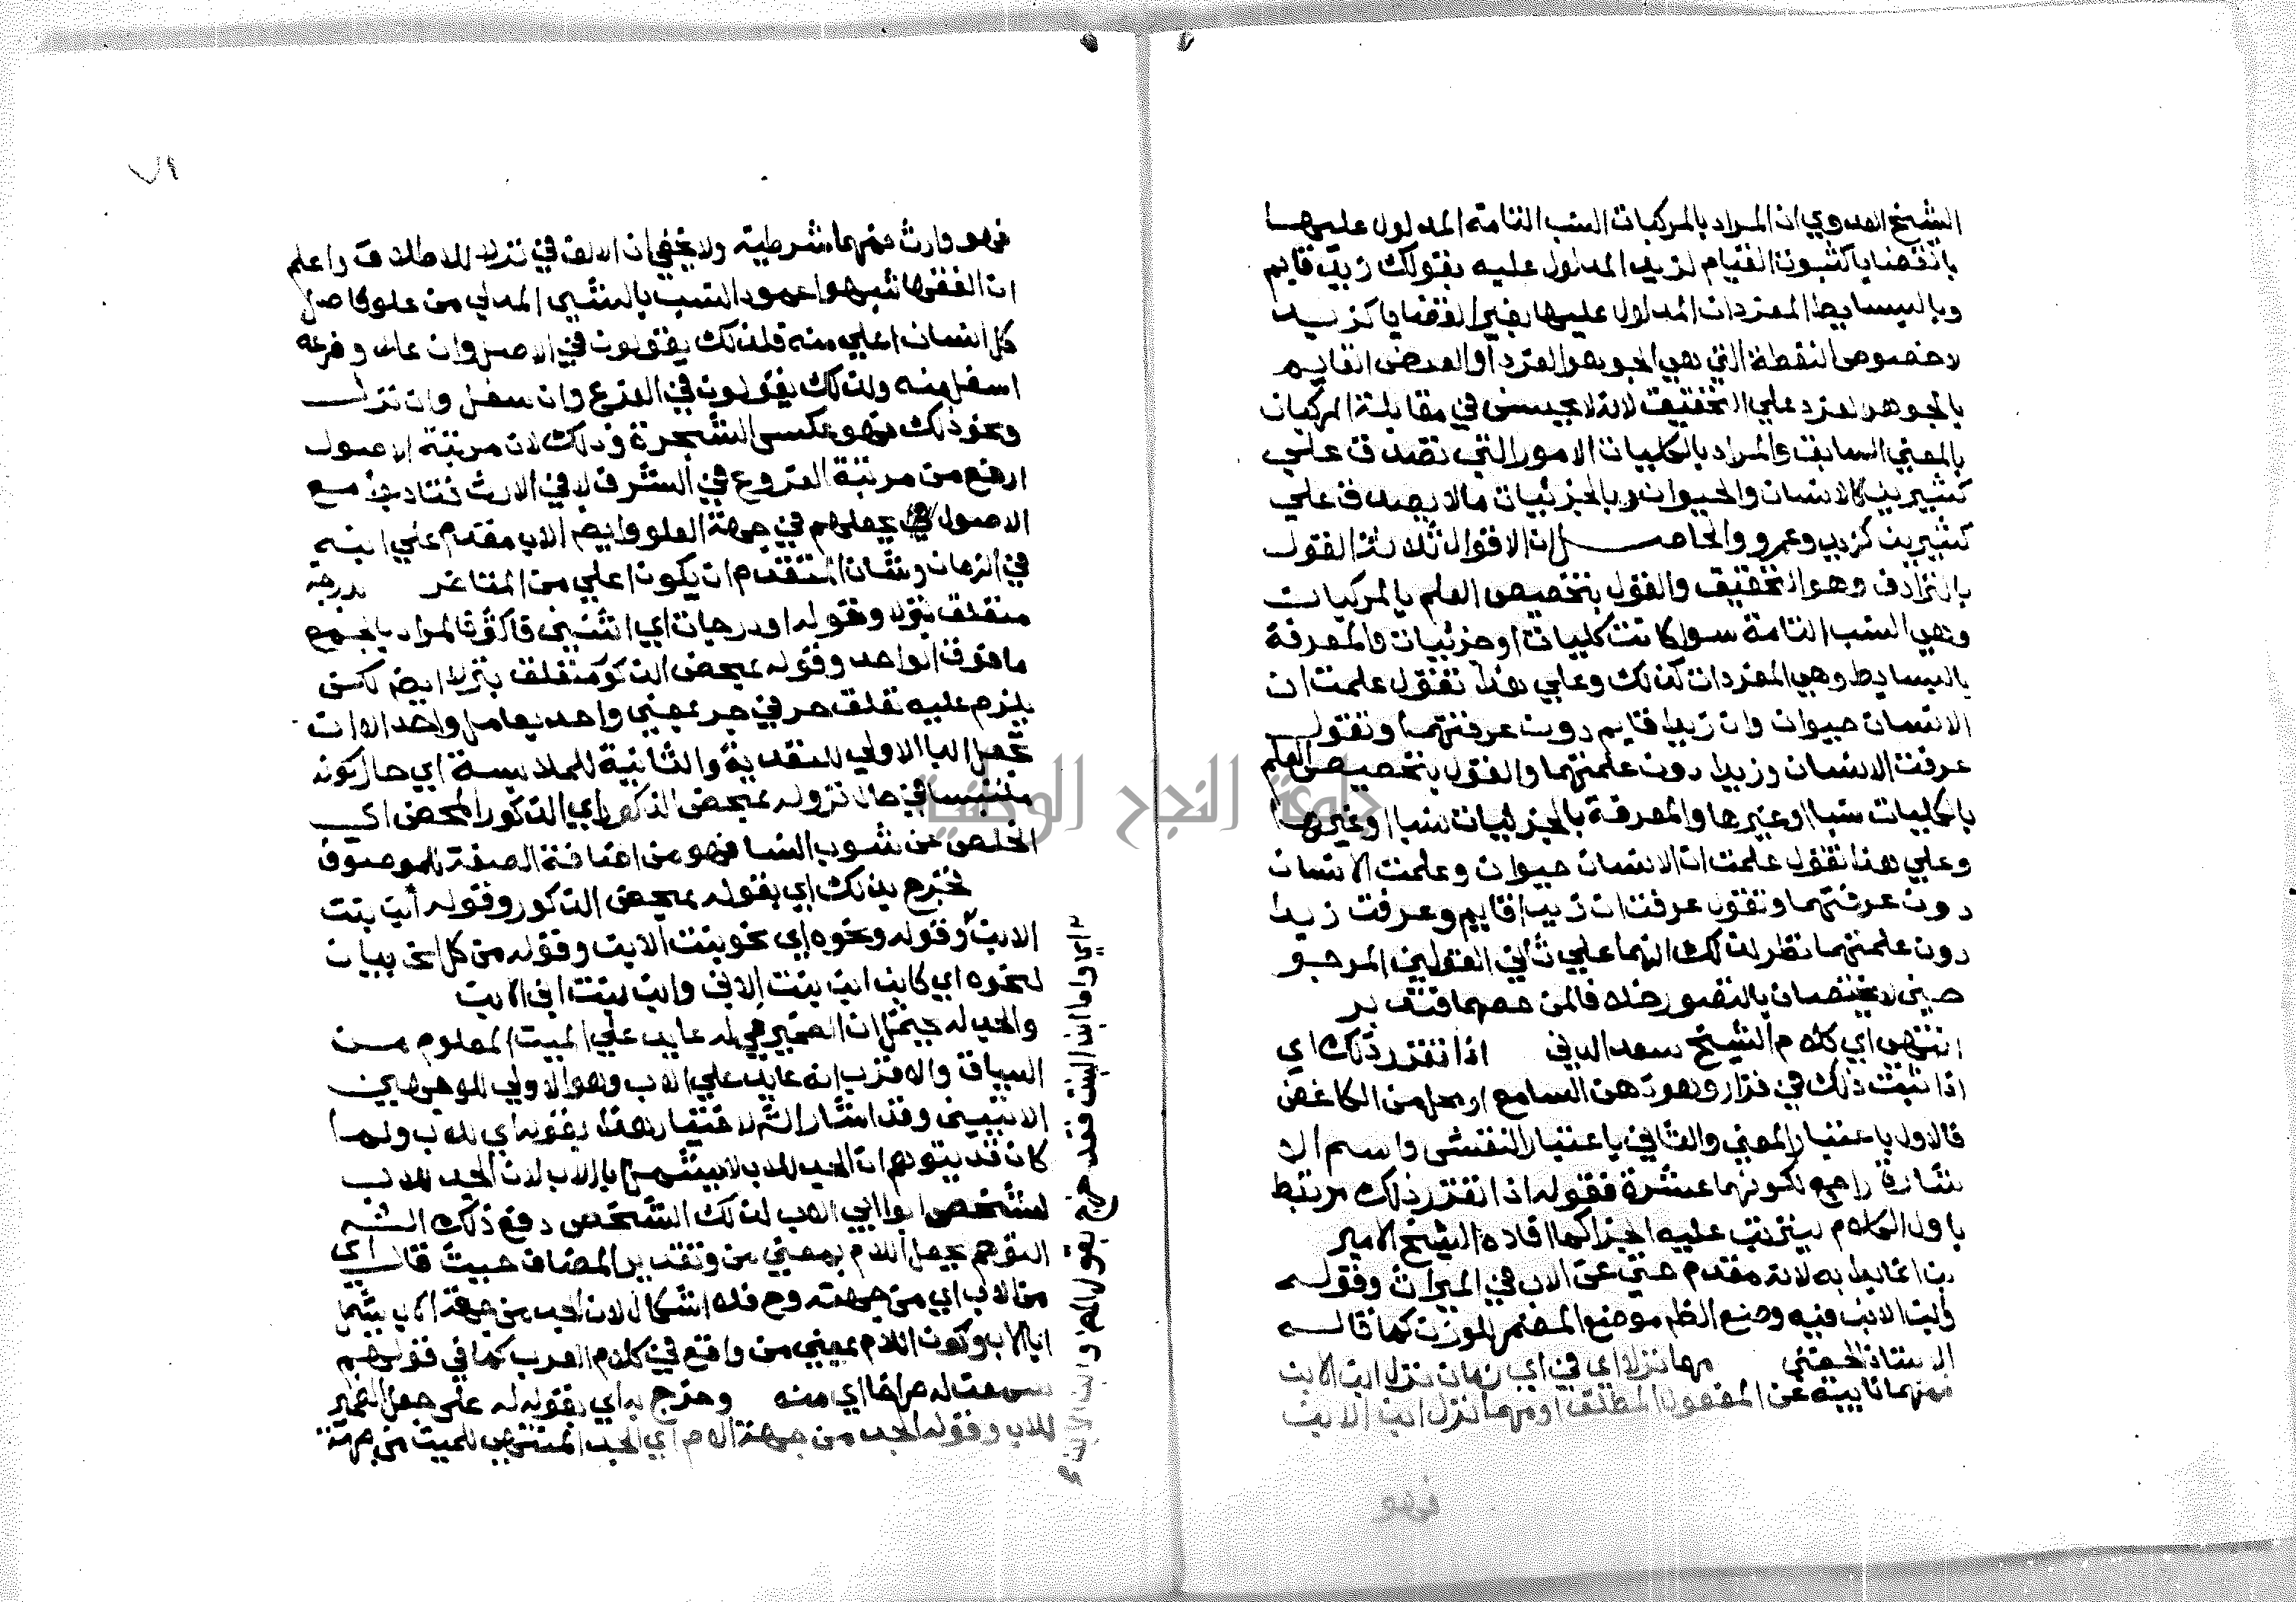 الشيخ العدوي ان المراد بالمركبات النسب التامة المدلول عليها
بالقضايا كثبوت القيام لزيد المدلول عليه بقولك زيد قايم
وبالبسايط المفردات المدلول عليها بغير القضايا كزيد
لا خصوص النقطة التي هي الجوهر الفرد او العرض القايم
بالجوهر الفرد علي التحقيق لانه لا يحسن في مقابلة المركبات
بالمعني السابق والمراد بالكليات الامور التي تصدق علي
كثيرين كالانسان والحيوان وبالجزئيات مالا يصدق علي
كثيرين كزيد وعمرو والحاصل ان الاقوال ثلاثة القول
بالترادف وهو التحقيق والقول بتخصيص العلم بالمركبات
وهي النسب التامة سوا كانت كليات او جزئيات والمعرفة
بالبسايط وهي المفردات كذلك وعلي هذا تقول علمت ان
الانسان حيوان وان زيدا قايم دون عرفتهما وتقول
عرفت الانسان وزيدا دون علمتهما والقول بتخصيص العلم
بالكليات نسبا او غيرها والمعرفة بالجزئيات نسبا او غيرها
وعلي هذا تقول علمت ان الانسان حيوان وعلمت الانسان
دون عرفتهما وتقول عرفت ان زيدا قايم وعرفت زيدا
دون علمتهما نظر لذلك انهما علي ثاني القولين المرجو
حين لا يختصان بالتصور خلافا لمن خصهما فتدبر
انتهي اي كلام الشيخ سعد الدين اذا تقرر ذلك اي
اذا ثبت ذلك في قرار وهو ذهن السامع او محل من الكاغض
فالاول باعتبار المعني والثاني باعتبار النقش واسم الا
شارة راجع لكونهما عشرة فقوله اذا تقرر ذلك مرتبط
باول الكلام ليترتب عليه الجزا كما افاده الشيخ الامير
بدا به لانه مقدم حتي عن الاب في الميراث وقوله
وابن الابن فيه وضع الظاهر موضع المضمر للوزن كما قاله
الاستاذ الحفني مهما نزلا اي في اي زمان نزل ابن الابن
فمهما نايبة عن المفعول المطلق او مهما نزل ابن الابن
فهو
٧١
فهو وارث فمهما شرطية ولا يخفي ان الالف في نزلا للاطلاق واعلم
ان الفقها شبهوا عمود النسب بالشي المدلي من علو فاصل
كل انسان اعلي منه فلذلك يقولون في الاصل وان علا وفرعه
اسفل منه ولذلك يقولون في الفرع وان سفل وان نزل
ونحو ذلك فهو عكس الشجرة وذلك لان مرتبة الاصول
ارفع من مرتبة الفروع في الشرف لا في الارث فتادبوا مع
الاصول في جعلهم في جهة العلو وايضا الاب مقدم علي ابنه
في الزمان وشان المتقدم ان يكون اعلي من المتاخر بدرجة
متعلق بنزلا وقوله او درجات اي اثنين فاكثر فالمراد بالجمع
ما فوق الواحد وقوله بمحض الذكور متعلق بنزلا ايضا لكن
يلزم عليه تعلق حرفي جر بمعني واحد بعامل واحد الا ان
تجعل البا الاولي للتعدية والثانية للملابسة اي حال كونه
ملتبسا في حال نزوله بمحض الذكور اي الذكور المحض اي
الخلص عن شوب النسا فهو من اضافة الصفة للموصوف
فخرج بذلك اي بقوله بمحض الذكور وقوله ابن بنت
الابن وقوله ونحوه اي نحو بنت الابن وقوله من كل
لنحوه اي كابن ابن بنت الابن وابن بنت ابن الابن
والجد له يحتمل ان الضمير في له عايد علي الميت المعلوم من
السياق والاقرب انه عايد علي الاب وهو الاولي
وقد اشار الش لاختيار هذا بقوله اي للاب ولما
كان قد يتوهم ان الجد للاب لا يشمل ابا الاب لان الجد للاب
لشخص ابو ابي الاب لذلك الشخص دفع ذلك الش
التوهم بجعل اللام بمعني من وتقدير المضاف حيث قال اي
من الاب اي من جهته وح فلا اشكال لان الجد من جهة الاب يشمل
ابا الاب وكون اللام بمعني من واقع في كلام العرب كما في قولهم
سمعت له صراخا اي منه وخرج به اي بقوله له علي جعل الضمير
للاب وقوله الجد من جهة الام اي الجد المنتهي للميت من جهة
اي واما ابن البنت فقد خرج بقوله وابن الابن